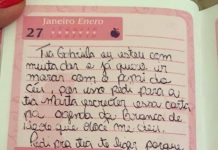 Janeiro Enero
27
Tia Gabriela eu estou com
muita dor e já quero ir
morar com o papai do
Céu, por isso pedi para a
tia Marta escrever essa carta
na agenda da Branca de
Neve que você me deu.
Pedi pra tia te ligar porque